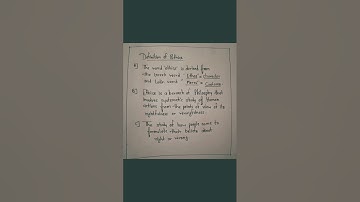 Definition of Ethics
A) The word Ethics is derived from
the Greek word "Ethos" = Character
and Latin word "Mores" = Customs
B) Ethics is a branch of Philosophy that
involves systematic study of Human
actions from the points of view of its
rightfulness or wrongfulness.
C) The study of how people come to
formulate their beliefs about
right or wrong